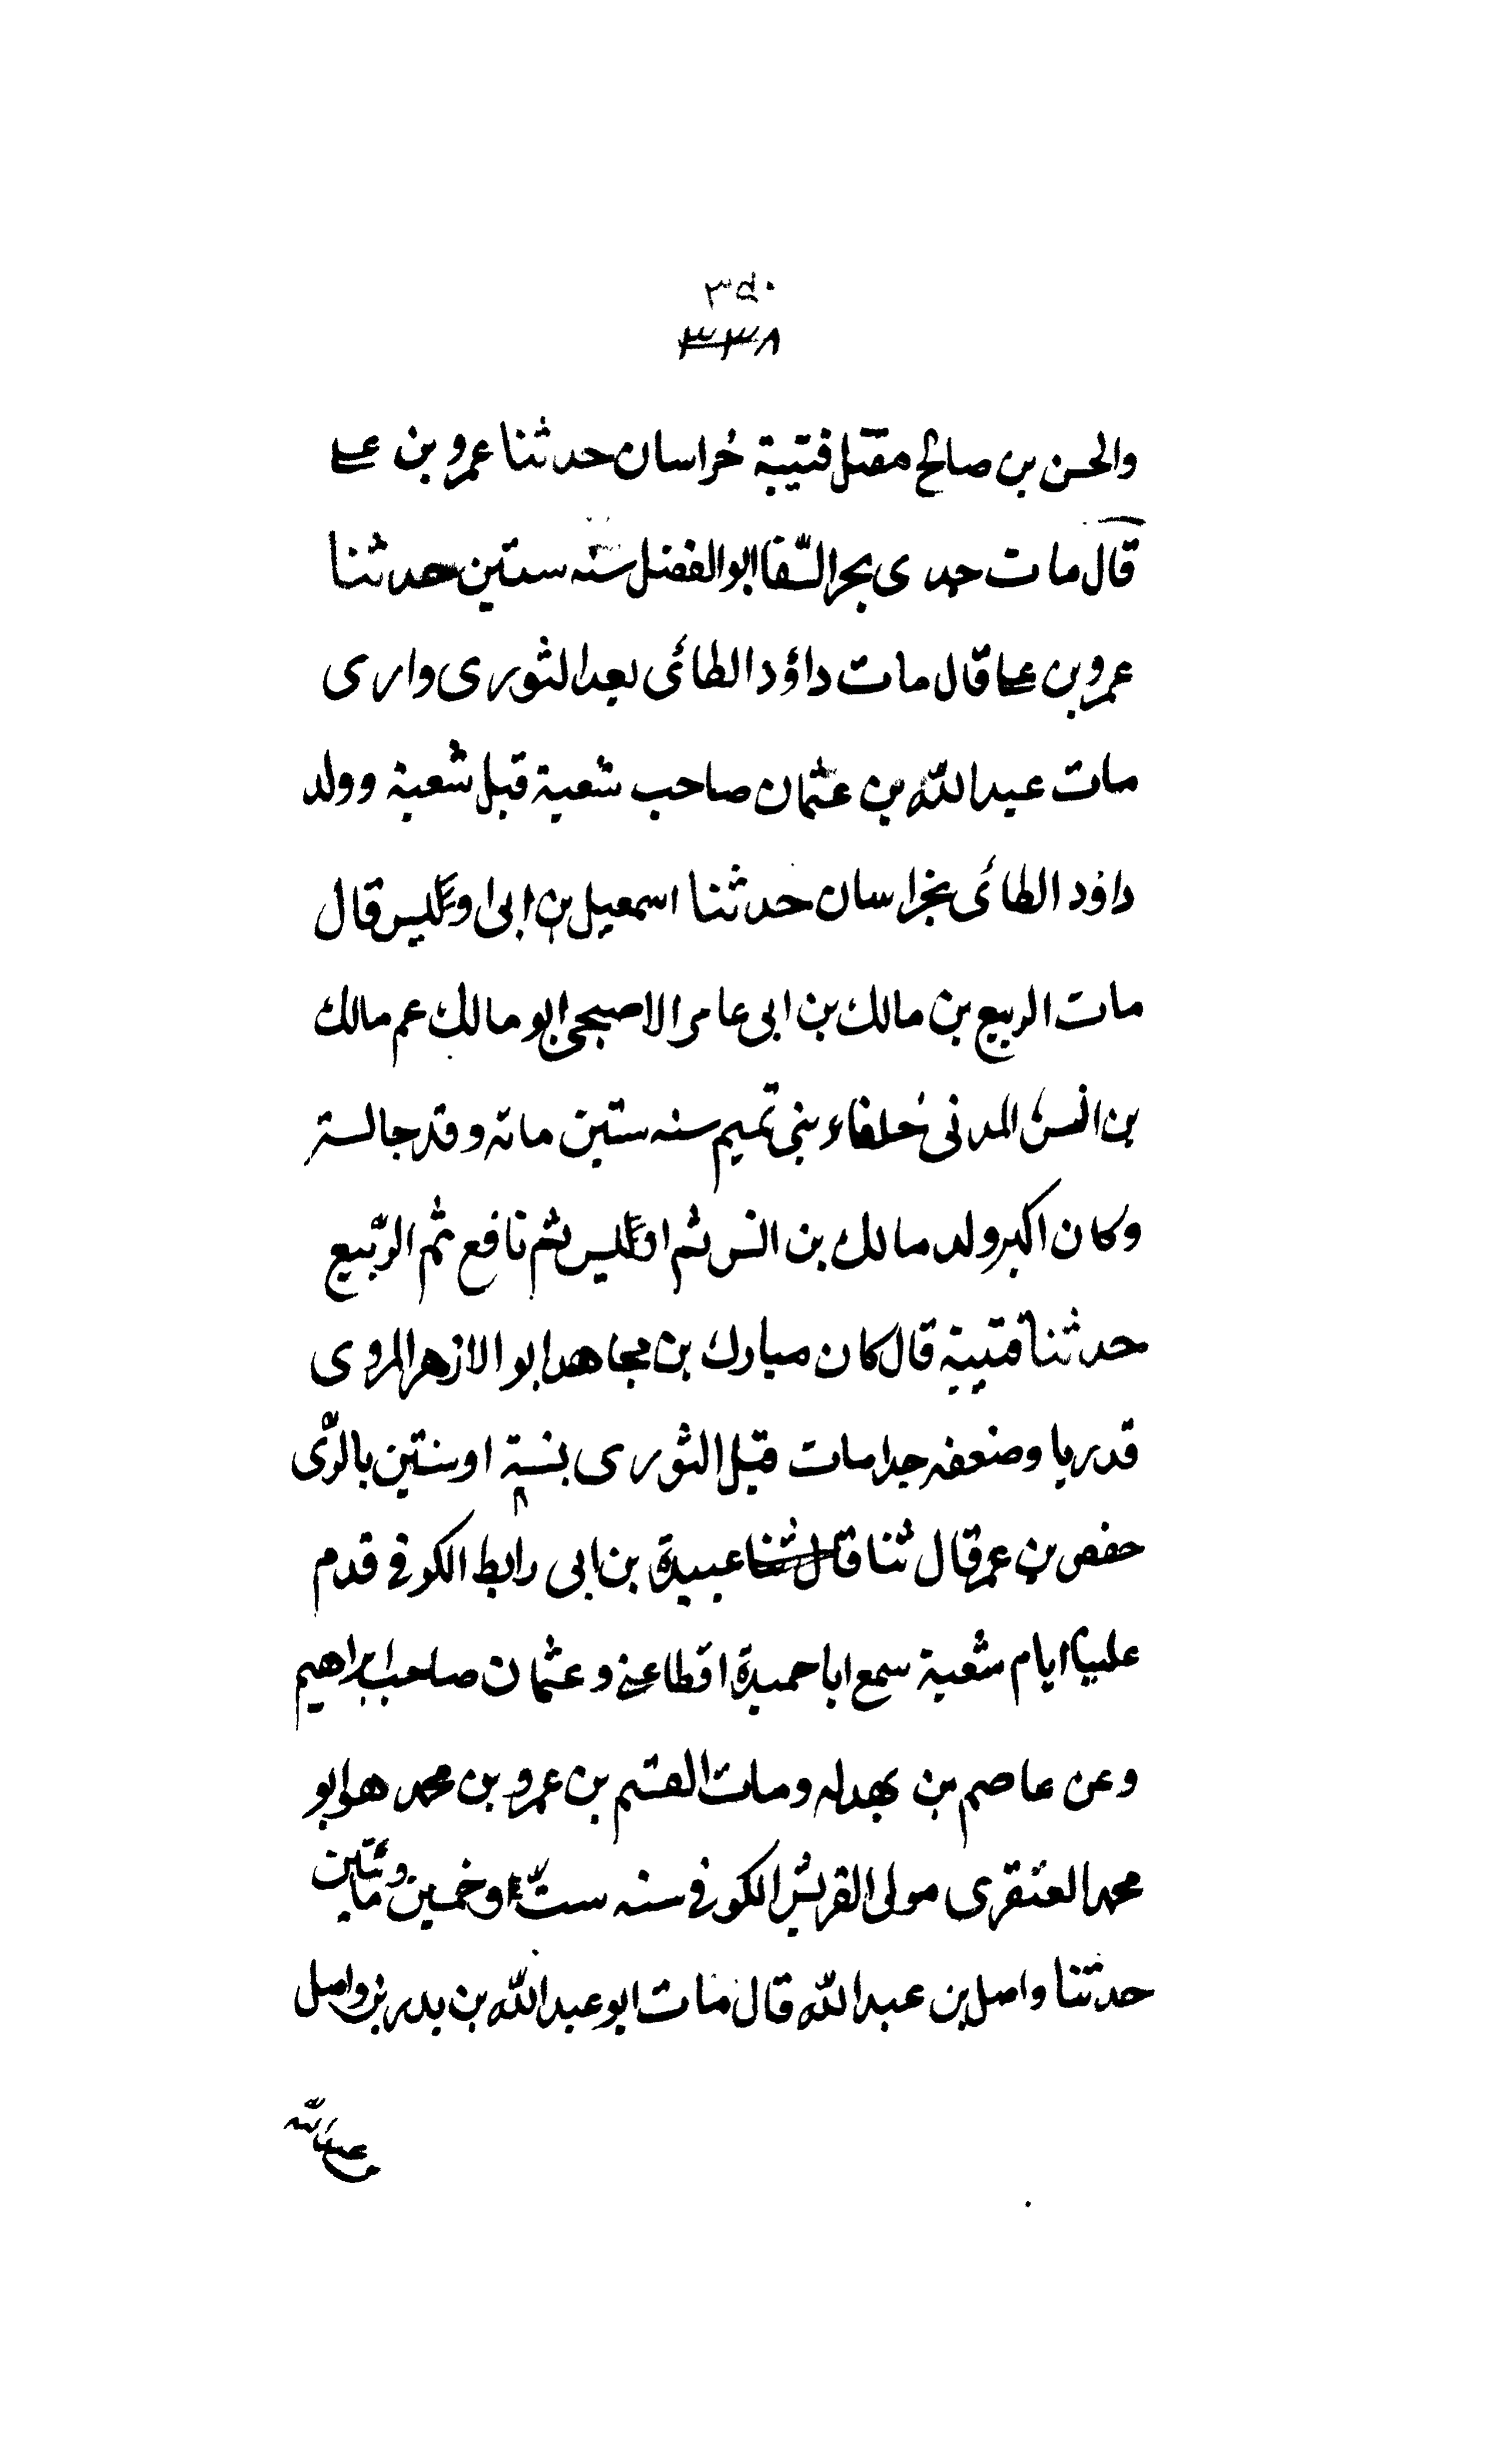 ٣۵٠
٣٣٨
والحسن بن صالح مقتل قتيبة خراسان حدثنا عمرو بن علے
قال مات جدى بحر السّقا ابو الفضل سنه ستين حدثنا
عمرو بن على قال مات داؤد الطائى بعد الثورى وارى
مات عبد اللّه بن عثمان صاحب شعبة قبل شعبة وولد
داؤد الطائى بخراسان حدثنا اسمعيل بن ابى اويس قال
مات الربيع بن مالك بن ابى عامر الاصبحى ابو مالك عم مالك
بن انس المدنى خلفاء بنى تميم سنه ستين مائه وقد جالسته
وكان اكبر ولد مالك بن انس ثم اويس ثم نافع ثم الربيع
حدثنا قتيبة قال كان مبارك بن مجاهد ابو الازهر المروى
قدريا وضعفه جدا مات قبل الثورى بسنة او سنتين بالرّى
حفص بن عمر قال ثنا قال ثنا عبيدة بن ابى رابط الكوفى قدم
علينا ايام شعبة سمع ابا حميدة اقطاعنے وعثمان صاحب ابراهيم
وعن عاصم بن بهدله ومات القسم بن عمرو بن محمد هو ابو
محمد العنقرى مولى القريش الكوفى سنه ستّ وخمسين ومائتين
حدثنا واصل بن عبد اللّه قال مات ابو عبد اللّه بن بدر بن واصل
بن عبد اللّه